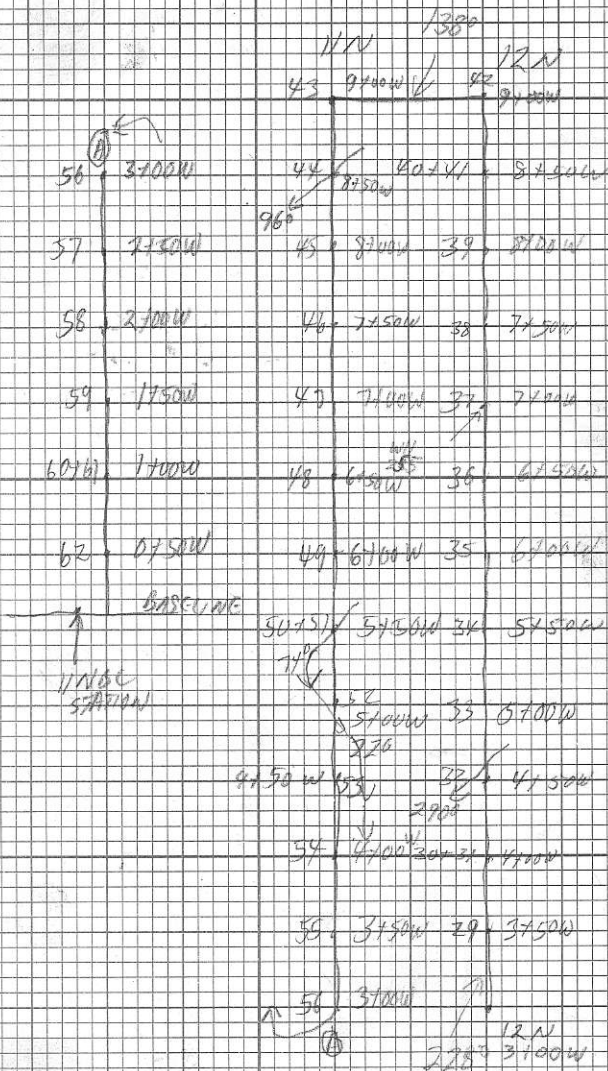 138°
11N 12N
43 9+00W 42 9+00W
A
56 3+00W 44 8+50W 40+41 8+50W
96°
57 2+50W 45 8+00W 39 8+00W
58 2+00W 46 7+50W 38 7+50W
59 1+50W 47 7+00W 37 7+00W
60+61 1+00W 48 6+50W 36 6+50W
62 0+50W 49 6+00W 35 6+00W
BASELINE
50+51 5+50W 34 5+50W
74°
11N BL
STATION
52
5+00W 33 5+00W
4+50W 53 32 4+50W
290°
54 4+00W 30+31 4+00W
55 3+50W 29 3+50W
56 3+00W
A
12N
228° 3+00W